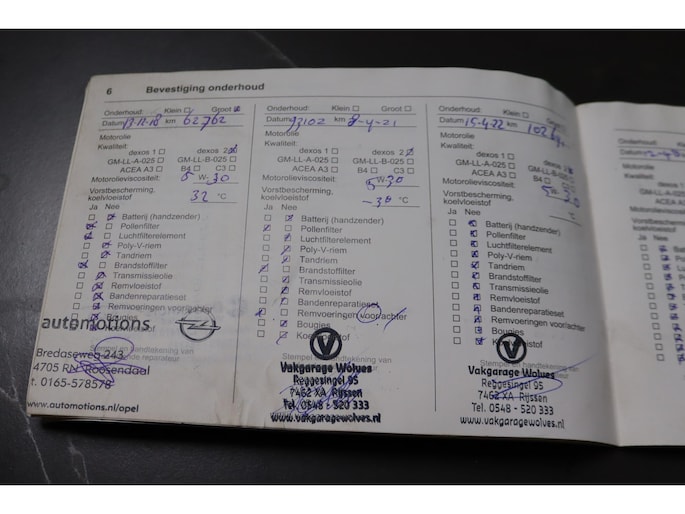 6 Bevestiging onderhoud
Onderhoud: Klein Groot
Datum 13-11-18 km 62762
Motorolie
Kwaliteit:
dexos 1 dexos 2
GM-LL-A-025 GM-LL-B-025
ACEA A3 B4 C3
Motorolieviscositeit: 5 W- 30
Vorstbescherming,
koelvloeistof 32 °C
Ja Nee
Batterij (handzender)
Pollenfilter
Luchtfilterelement
Poly-V-riem
Tandriem
Brandstoffilter
Transmissieolie
Remvloeistof
Bandenreparatieset
Remvoeringen voor/achter
Bougies
automotions
Bredaseweg 243
4705 RN Roosendaal
t. 0165-578578
www.automotions.nl/opel
Onderhoud: Klein Groot
Datum 93102 km 8-4-21
Motorolie
Kwaliteit:
dexos 1 dexos 2
GM-LL-A-025 GM-LL-B-025
ACEA A3 B4 C3
Motorolieviscositeit: 5 W-30
Vorstbescherming,
koelvloeistof -30 °C
Ja Nee
Batterij (handzender)
Pollenfilter
Luchtfilterelement
Poly-V-riem
Tandriem
Brandstoffilter
Transmissieolie
Remvloeistof
Bandenreparatieset
Remvoeringen voor/achter
Bougies
Koelvloeistof
Stempel en handtekening van
Vakgarage Wolves
Reggesingel 95
7462 XA Rijssen
Tel. 0548 - 520 333
www.vakgaragewolves.nl
Onderhoud: Klein Groot
Datum 15-4-22 km
Motorolie
Kwaliteit:
dexos 1 dexos 2
GM-LL-A-025 GM-LL-B-025
ACEA A3 B4 C3
Motorolieviscositeit: 5 W-30
Vorstbescherming,
koelvloeistof °C
Ja Nee
Batterij (handzender)
Pollenfilter
Luchtfilterelement
Poly-V-riem
Tandriem
Brandstoffilter
Transmissieolie
Remvloeistof
Bandenreparatieset
Remvoeringen voor/achter
Bougies
Koelvloeistof
Stempel en handtekening van
Vakgarage Wolves
Reggesingel 95
7462 XA Rijssen
Tel. 0548 - 520 333
www.vakgaragewolves.nl
Onderhoud:
Datum
Motorolie
Kwaliteit:
Ja Nee